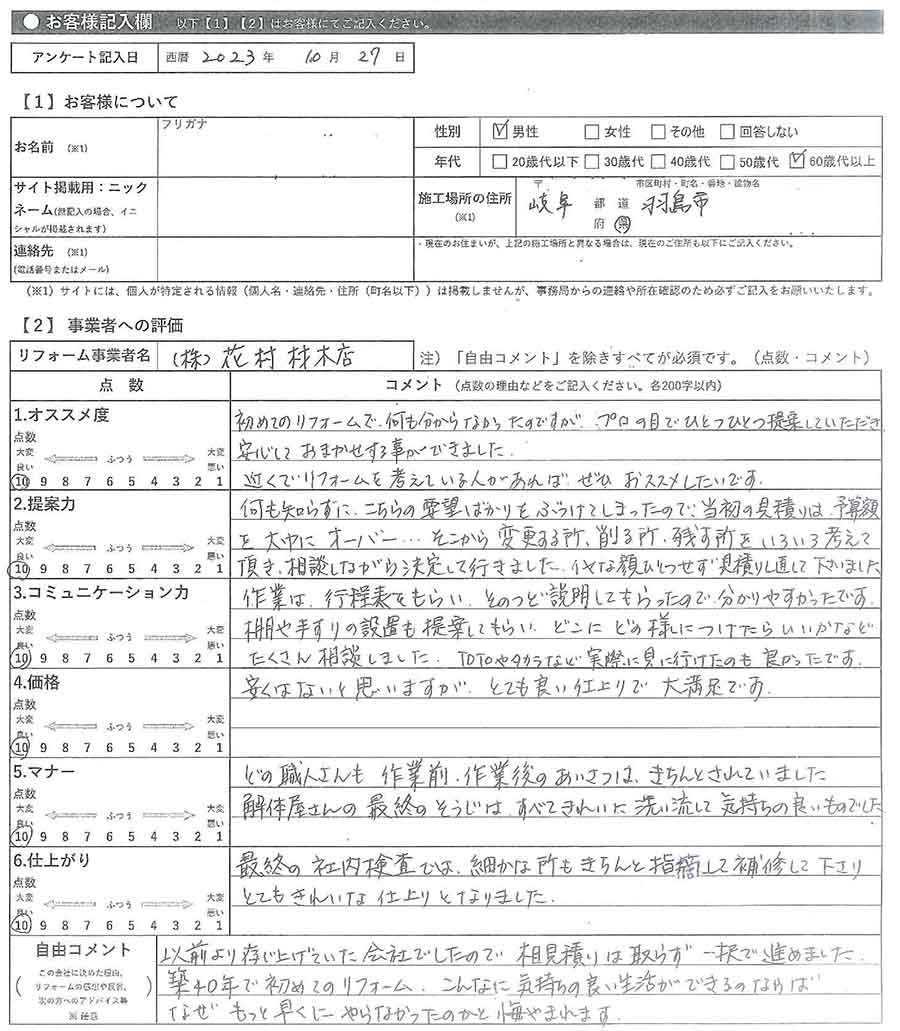 ● お客様記入欄 以下【1】【2】はお客様にてご記入ください。
アンケート記入日 西暦 2023 年 10 月 27 日
【1】お客様について
お名前 (※1) フリガナ 性別 ☑男性 □女性 □その他 □回答しない
年代 □20歳代以下 □30歳代 □40歳代 □50歳代 ☑60歳代以上
サイト掲載用:ニックネーム(無記入の場合、イニシャルが掲載されます)
施工場所の住所 (※1) 〒 市区町村・町名・番地・建物名
岐阜 都 道 府 県 羽島市
連絡先 (※1)
(電話番号またはメール)
・現在のお住まいが、上記の施工場所と異なる場合は、現在のご住所も以下にご記入ください。
(※1)サイトには、個人が特定される情報(個人名・連絡先・住所(町名以下))は掲載しませんが、事務局からの連絡や所在確認のため必ずご記入をお願いいたします。
【2】事業者への評価
リフォーム事業者名 (株)花村材木店 注)「自由コメント」を除きすべてが必須です。(点数・コメント)
点 数 コメント (点数の理由などをご記入ください。各200字以内)
1.オススメ度
点数
大変良い ふつう 大変悪い
10 9 8 7 6 5 4 3 2 1
初めてのリフォームで、何も分からなかったのですが、プロの目でひとつひとつ提案していただき
安心しておまかせする事ができました.
近くでリフォームを考えている人があれば、ぜひおススメしたいです.
2.提案力
点数
大変良い ふつう 大変悪い
10 9 8 7 6 5 4 3 2 1
何も知らずに、こちらの要望ばかりをぶつけてしまったので、当初の見積りは、予算額
を大巾にオーバー…そこから変更する所、削る所、残す所をいろいろ考えて
頂き、相談しながら決定して行きました。イヤな顔ひとつせず見積り直して下さいました
3.コミュニケーション力
点数
大変良い ふつう 大変悪い
10 9 8 7 6 5 4 3 2 1
作業は、行程表をもらい、そのつど説明してもらったので、分かりやすかったです.
棚や手すりの設置も提案してもらい、どこにどの様につけたらいいかなど
たくさん相談しました. TOTOやタカラなど実際に見に行けたのも良かったです.
4.価格
点数
大変良い ふつう 大変悪い
10 9 8 7 6 5 4 3 2 1
安くはないと思いますが、とても良い仕上りで大満足です.
5.マナー
点数
大変良い ふつう 大変悪い
10 9 8 7 6 5 4 3 2 1
どの職人さんも作業前、作業後のあいさつは、きちんとされていました
解体屋さんの最終のそうじは、すべてきれいに洗い流して気持ちの良いものでした
6.仕上がり
点数
大変良い ふつう 大変悪い
10 9 8 7 6 5 4 3 2 1
最終の社内検査では、細かな所もきちんと指摘して補修して下さり
とてもきれいな仕上りとなりました.
自由コメント
(この会社に決めた理由、リフォームの感想や反省、次の方へのアドバイス等 ※任意)
以前より存じ上げていた会社でしたので相見積りは取らず一択で進めました.
築40年で初めてのリフォーム. こんなに気持ちの良い生活ができるのならば
なぜもっと早くにやらなかったのかと悔やまれます.